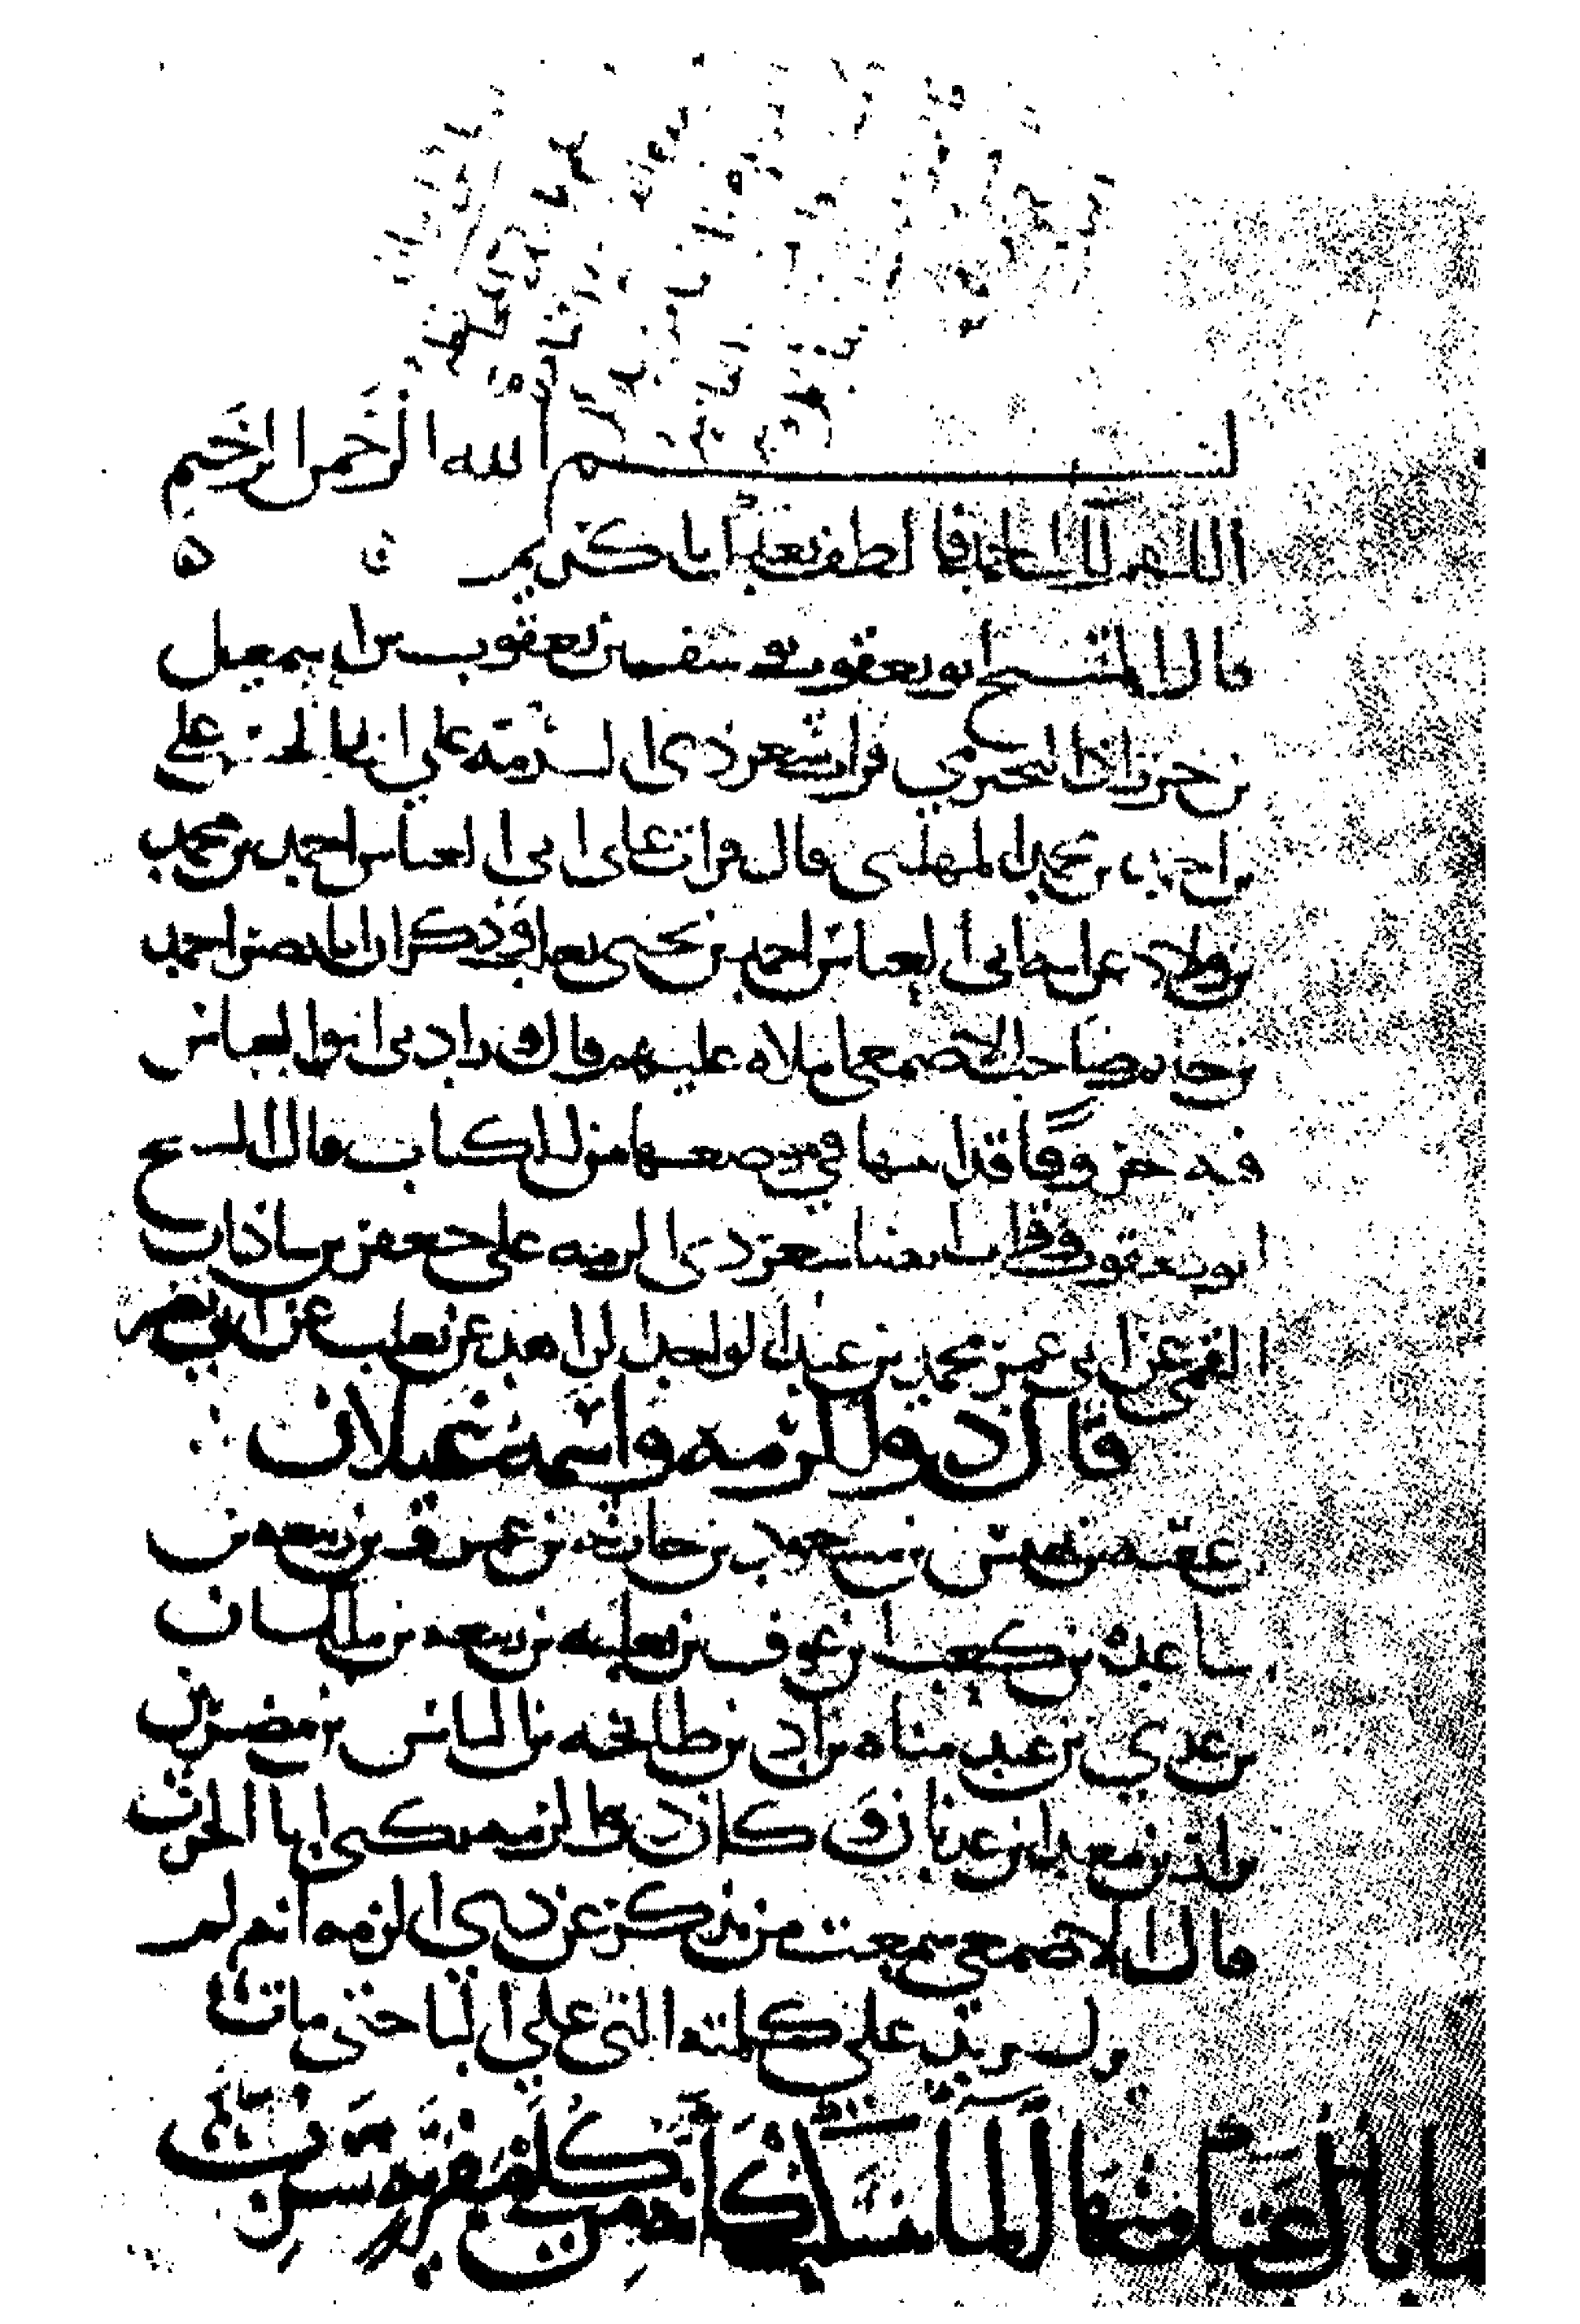 بسم الله الرحمن الرحيم
اللهم لك الحمد فالطف بعبدك يا كريم
قال الشيخ ابو يعقوب يوسف بن يعقوب بن اسمعيل
بن خرزاذ النجيرمي قرات شعر ذي الرمة على ابي الحسين علي
بن احمد بن محمد المهلبي قال قرات على ابي العباس احمد بن محمد
بن ولاد عن ابيه ابي العباس احمد بن يحيى ثعلب وذكر ان ابا نصر احمد
بن حاتم صاحب الاصمعي املاه عليهم قال وزادني ابو العباس
فيه حروفا قد اثبتها في موضعها من الكتاب قال الشيخ
ابو يعقوب وقرات ايضا شعر ذي الرمة على جعفر بن شاذان
القمي عن ابي عمر محمد بن عبد الواحد الزاهد عن ثعلب عن ابي نصر
قال ذو الرمة واسمه غيلان
بن عقبة بن نهيس بن مسعود بن حارثة بن عمرو بن ربيعة بن
ساعدة بن كعب بن عوف بن ثعلبة بن ربيعة بن ملكان
بن عدي بن عبد مناة بن اد بن طابخة بن الياس بن مضر بن نزار
بن اد بن معد بن عدنان وكان ذو الرمة يكنى ابا الحرث
قال الاصمعي سمعت من يذكر عن ذي الرمة انه لم
يزل يزيد في كلمته التي على البا حتى مات
ما بال عينك منها الماء ينسكب كانه من كلى مفرية سرب